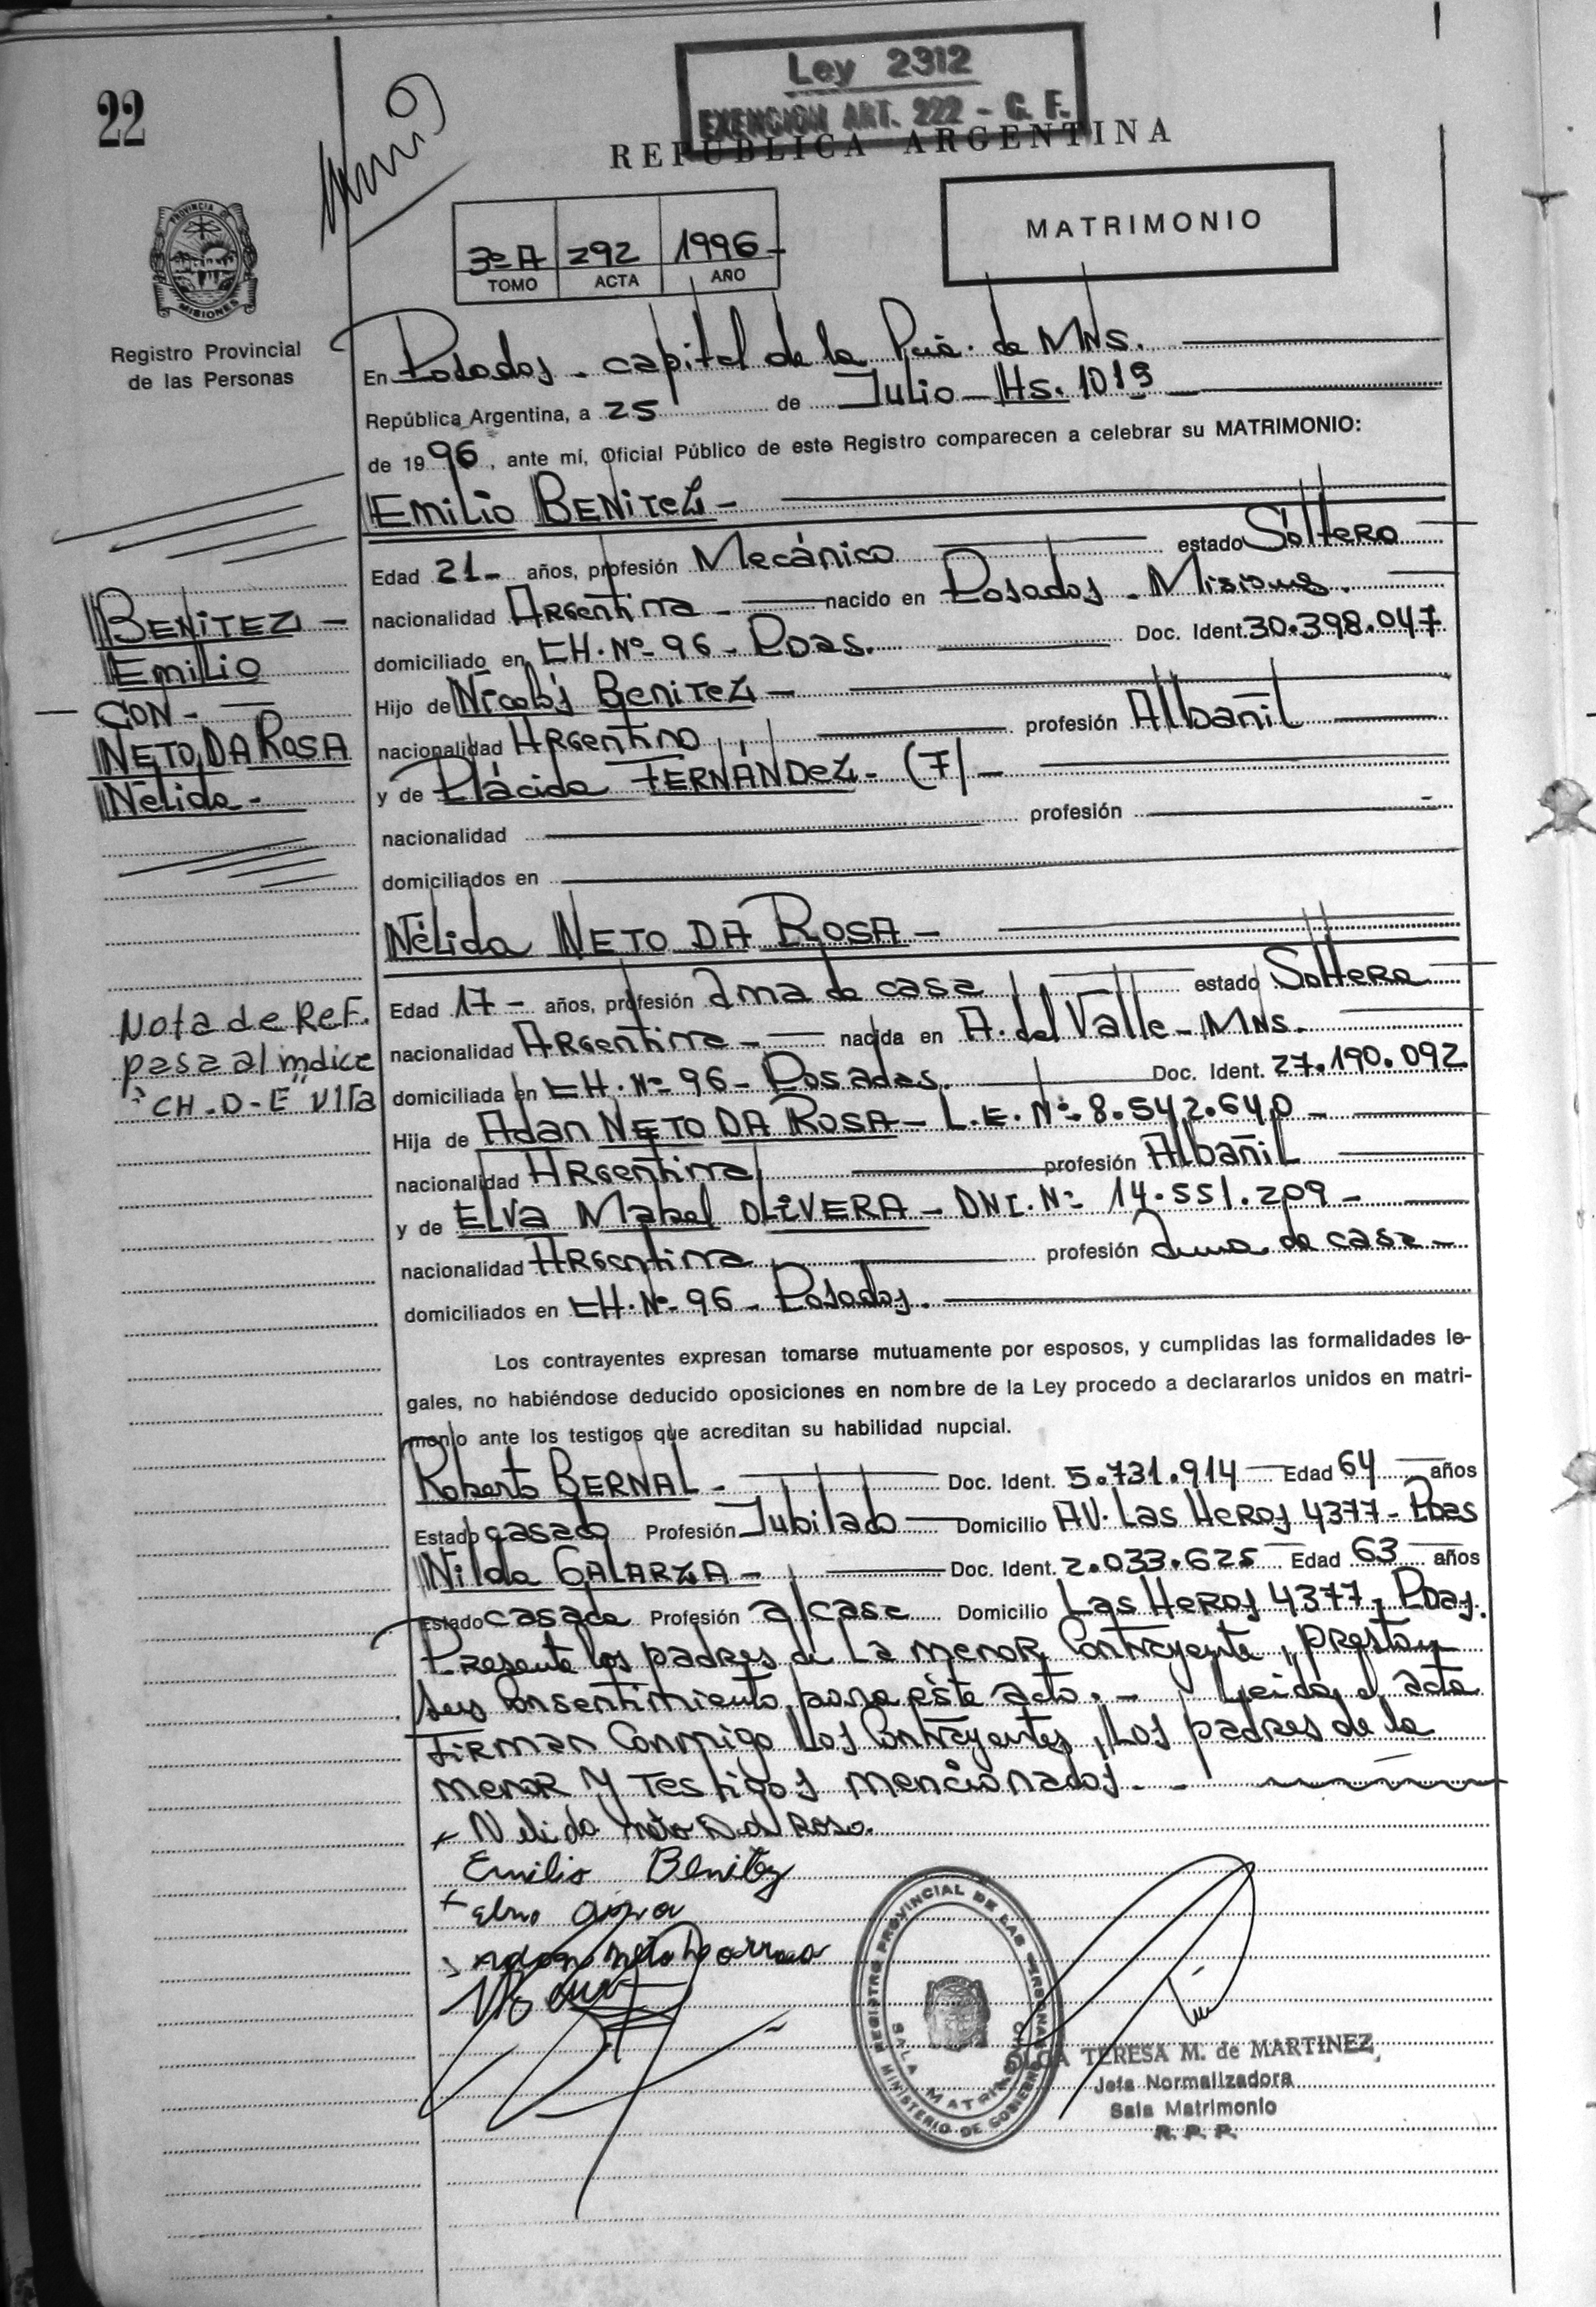 22
Ley 2312
EXENCION ART. 222 - C. F.
REPUBLICA ARGENTINA
PROVINCIA DE
MISIONES
Registro Provincial
de las Personas
3º A 292 1996-
TOMO ACTA AÑO
MATRIMONIO
En Posadas - capital de la Pcia. de MNS.
República Argentina, a 25 de Julio - Hs. 1015
de 1996, ante mí, Oficial Público de este Registro comparecen a celebrar su MATRIMONIO:
Emilio BENITEZ -
Edad 21- años, profesión Mecánico estado Soltero
nacionalidad Argentina - nacido en Posadas - Misiones.
domiciliado en CH. Nº 96 - Pdas. Doc. Ident. 30.398.047
Hijo de Nicolás Benitez -
nacionalidad Argentino profesión Albañil
y de Plácida FERNÁNDEZ - (F) -
nacionalidad profesión
domiciliados en
BENITEZ -
Emilio
CON -
NETO DA ROSA
Nélida -
Nélida NETO DA ROSA -
Edad 17 - años, profesión ama de casa estado Soltera
nacionalidad Argentina - nacida en A. del Valle - MNS.
domiciliada en CH. Nº 96 - Posadas. Doc. Ident. 27.190.092
Hija de Adan NETO DA ROSA - L.E. Nº 8.542.640 -
nacionalidad Argentina profesión Albañil
y de ELVA Mabel OLIVERA - DNI. Nº 14.551.209 -
nacionalidad Argentina profesión ama de casa -
domiciliados en CH. Nº 96 - Posadas.
Nota de Ref.
pasa al indice
"CH-D-E" Vlta
Los contrayentes expresan tomarse mutuamente por esposos, y cumplidas las formalidades le-
gales, no habiéndose deducido oposiciones en nombre de la Ley procedo a declararlos unidos en matri-
monio ante los testigos que acreditan su habilidad nupcial.
Roberto BERNAL - Doc. Ident. 5.731.914 Edad 64 años
Estado casado Profesión Jubilado Domicilio AV. Las Heras 4377 - Pdas
Nilda GALARZA - Doc. Ident. 2.033.625 Edad 63 años
Estado casada Profesión a/casa Domicilio Las Heras 4377 - Pdas.
Presente los padres de la menor Contrayente, prestan
sus Consentimiento para éste acto. - Leida el acta
Firman Conmigo los Contrayentes, los padres de la
menor y Testigos mencionados. -
Nelida neto Da Rosa.
Emilio Benitez
REGISTRO PROVINCIAL DE LAS PERSONAS
SALA MATRIMONIO
MINISTERIO DE GOBIERNO
OLGA TERESA M. de MARTINEZ
Jefa Normalizadora
Sala Matrimonio
R. P. P.